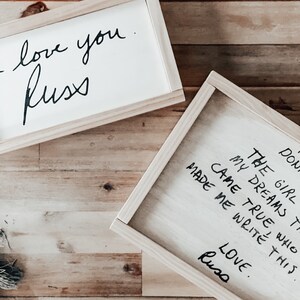 I love you.
Russ
DON
THE GIRL
MY DREAMS TH
CAME TRUE, WHICH
MADE ME WRITE THIS
LOVE.
Russ